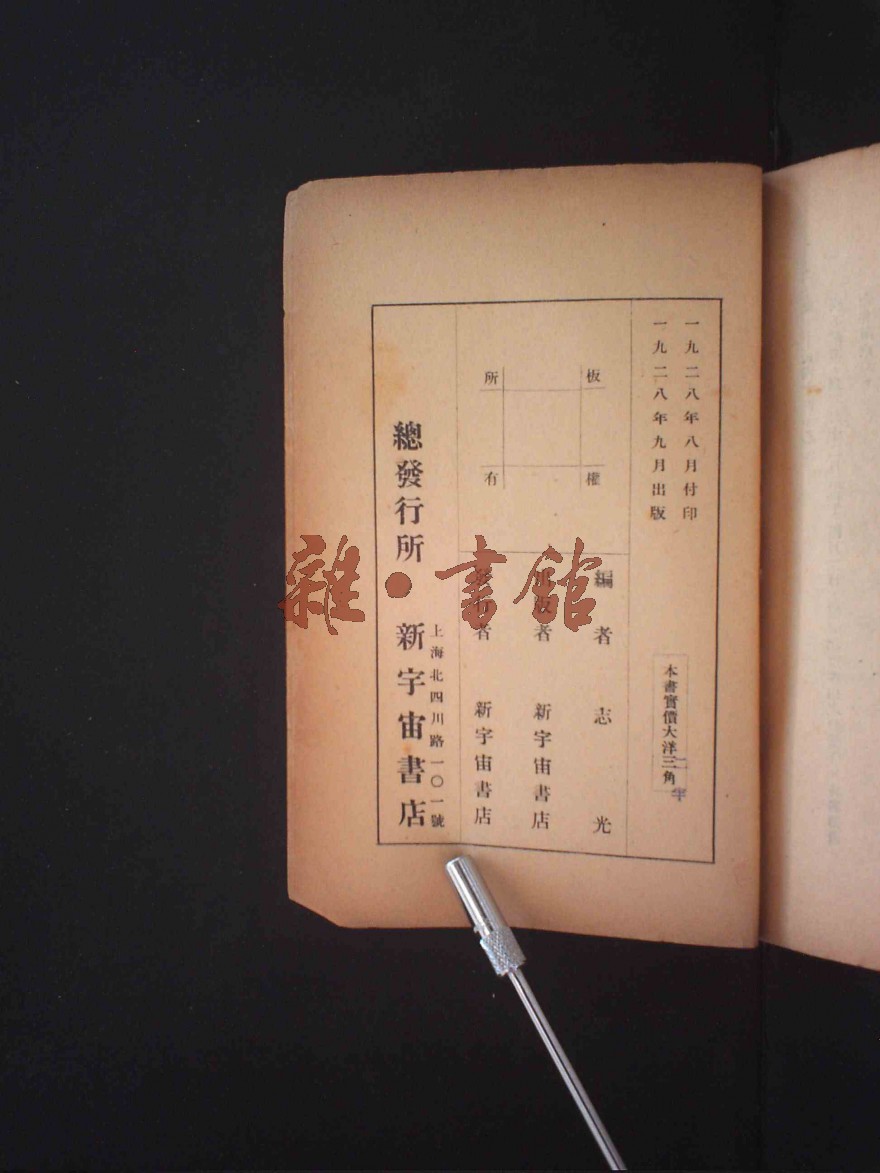 一九二八年八月付印
一九二八年九月出版
本書實價大洋三角
半
板權
所有
編者 志光
出版者 新宇宙書店
發行者 新宇宙書店
上海北四川路一〇一號
總發行所 新宇宙書店
雜·書館